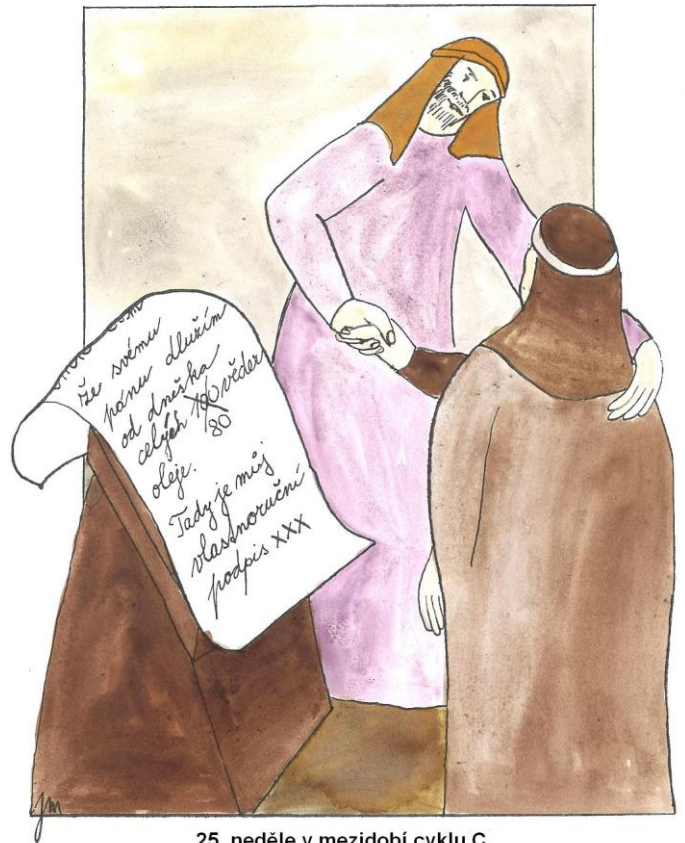 že svému
pánu dlužím
od dneška
celých 100 věder
80
oleje.
Tady je můj
vlastnoruční
podpis XXX
JM
25. neděle v mezidobí cyklu C